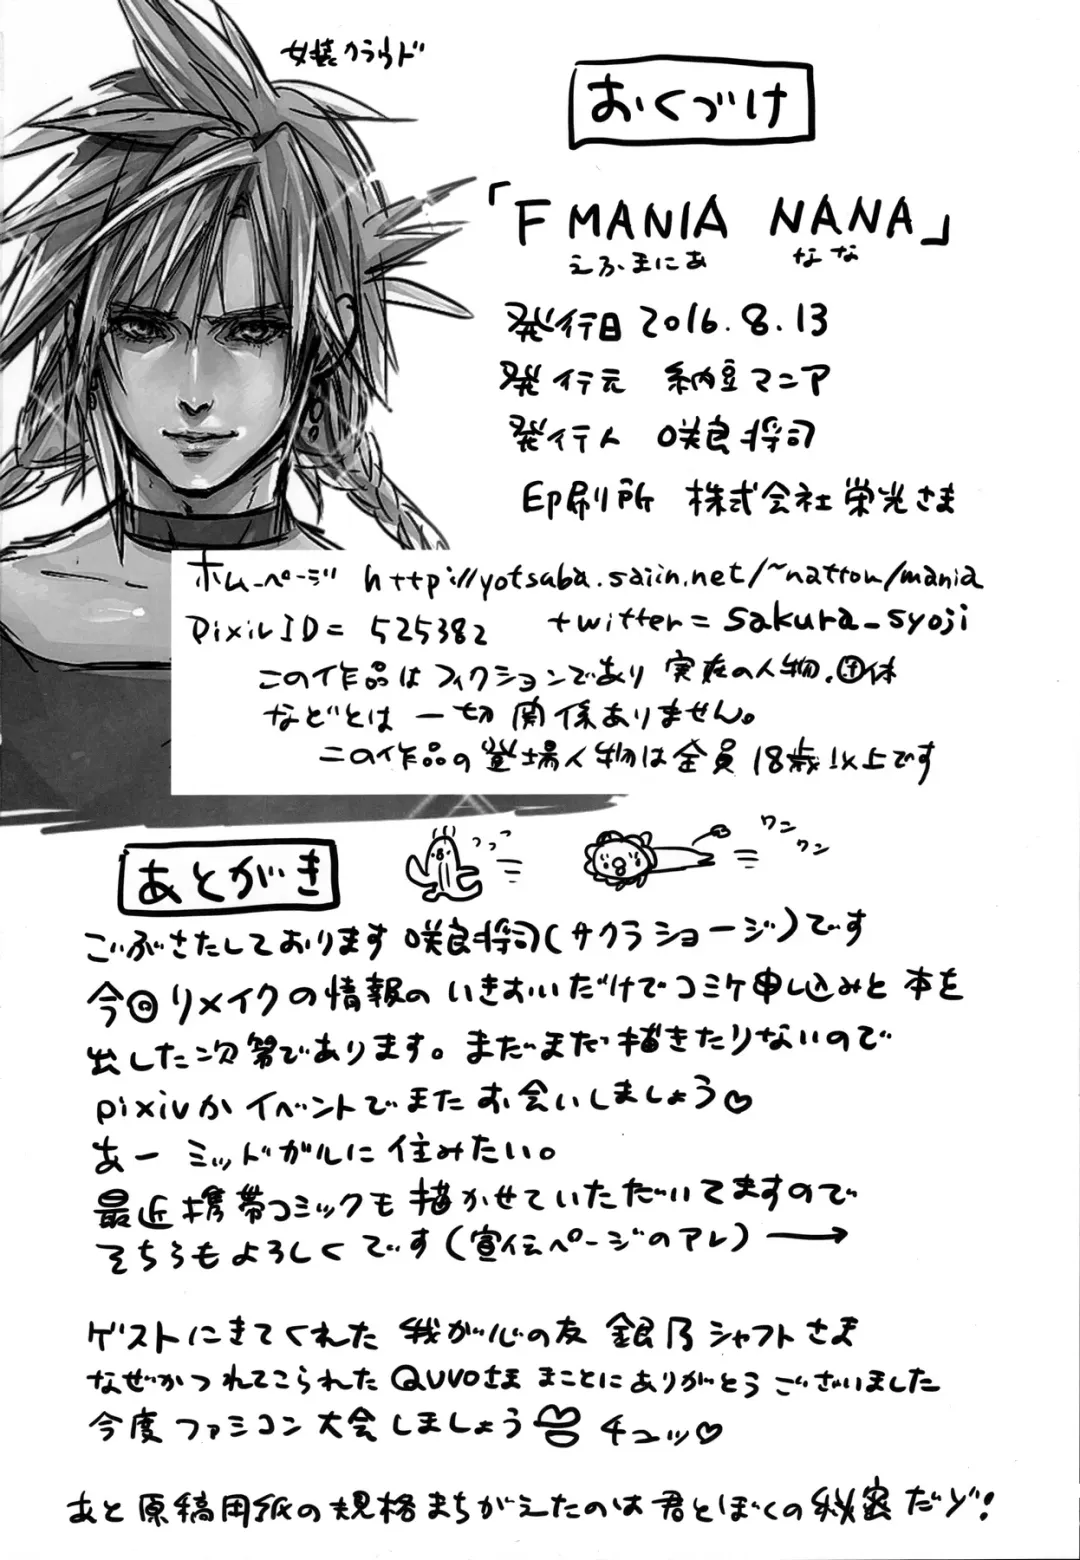 女装クラウド
おくづけ
「F MANIA NANA」
えふまにあ なな
発行日 2016.8.13
発行元 納豆マニア
発行人 咲良将司
印刷所 株式会社栄光さま
ホームページ http://yotsuba.saiin.net/~nattou/mania
pixiv ID= 525382 twitter= sakura_syoji
この作品はフィクションであり 実在の人物、団体
などとは 一切関係ありません。
この作品の登場人物は全員 18歳以上です
あとがき
っっっ
ワン
ワン
ごぶさたしております 咲良将司(サクラショージ)です
今回リメイクの情報の いきおいだけでコミケ申し込みと 本を
出した次第であります。まだまだ描きたりないので
pixivか イベントでまた お会いしましょう♡
あー ミッドガルに 住みたい。
最近携帯コミックも描かせていただいてますので
そちらもよろしくです(宣伝ページのアレ)→
ゲストにきてくれた 我が心の友 銀乃シャフトさま
なぜかつれてこられたQUVOさま まことにありがとうございました
今度ファミコン大会しましょう チュッ♡
あと原稿用紙の規格まちがえたのは君とぼくの秘密だゾ!